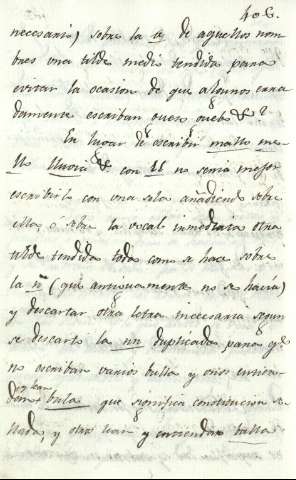 406.
necesario) sobre la u de aquellos nom
bres una tilde medio tendida para
evitar la ocasion de que algunos erra
damente escriban oveso ovebo &c?
En lugar de escribir mallo me-
llo lluvia &c con ll no seria mejor
escribirlo con una sola añadiendo sobre
ella o sobre la vocal inmediata otra
tilde tendida toda como se hace sobre
la ñ (que antiguamente no se hacia)
y descartar otra letra innecesaria segun
se descarto la nn duplicada para qe
no escriban varios bulla y otros
bula que significa constitucion se
llada, y otro lean y entiendan bulla